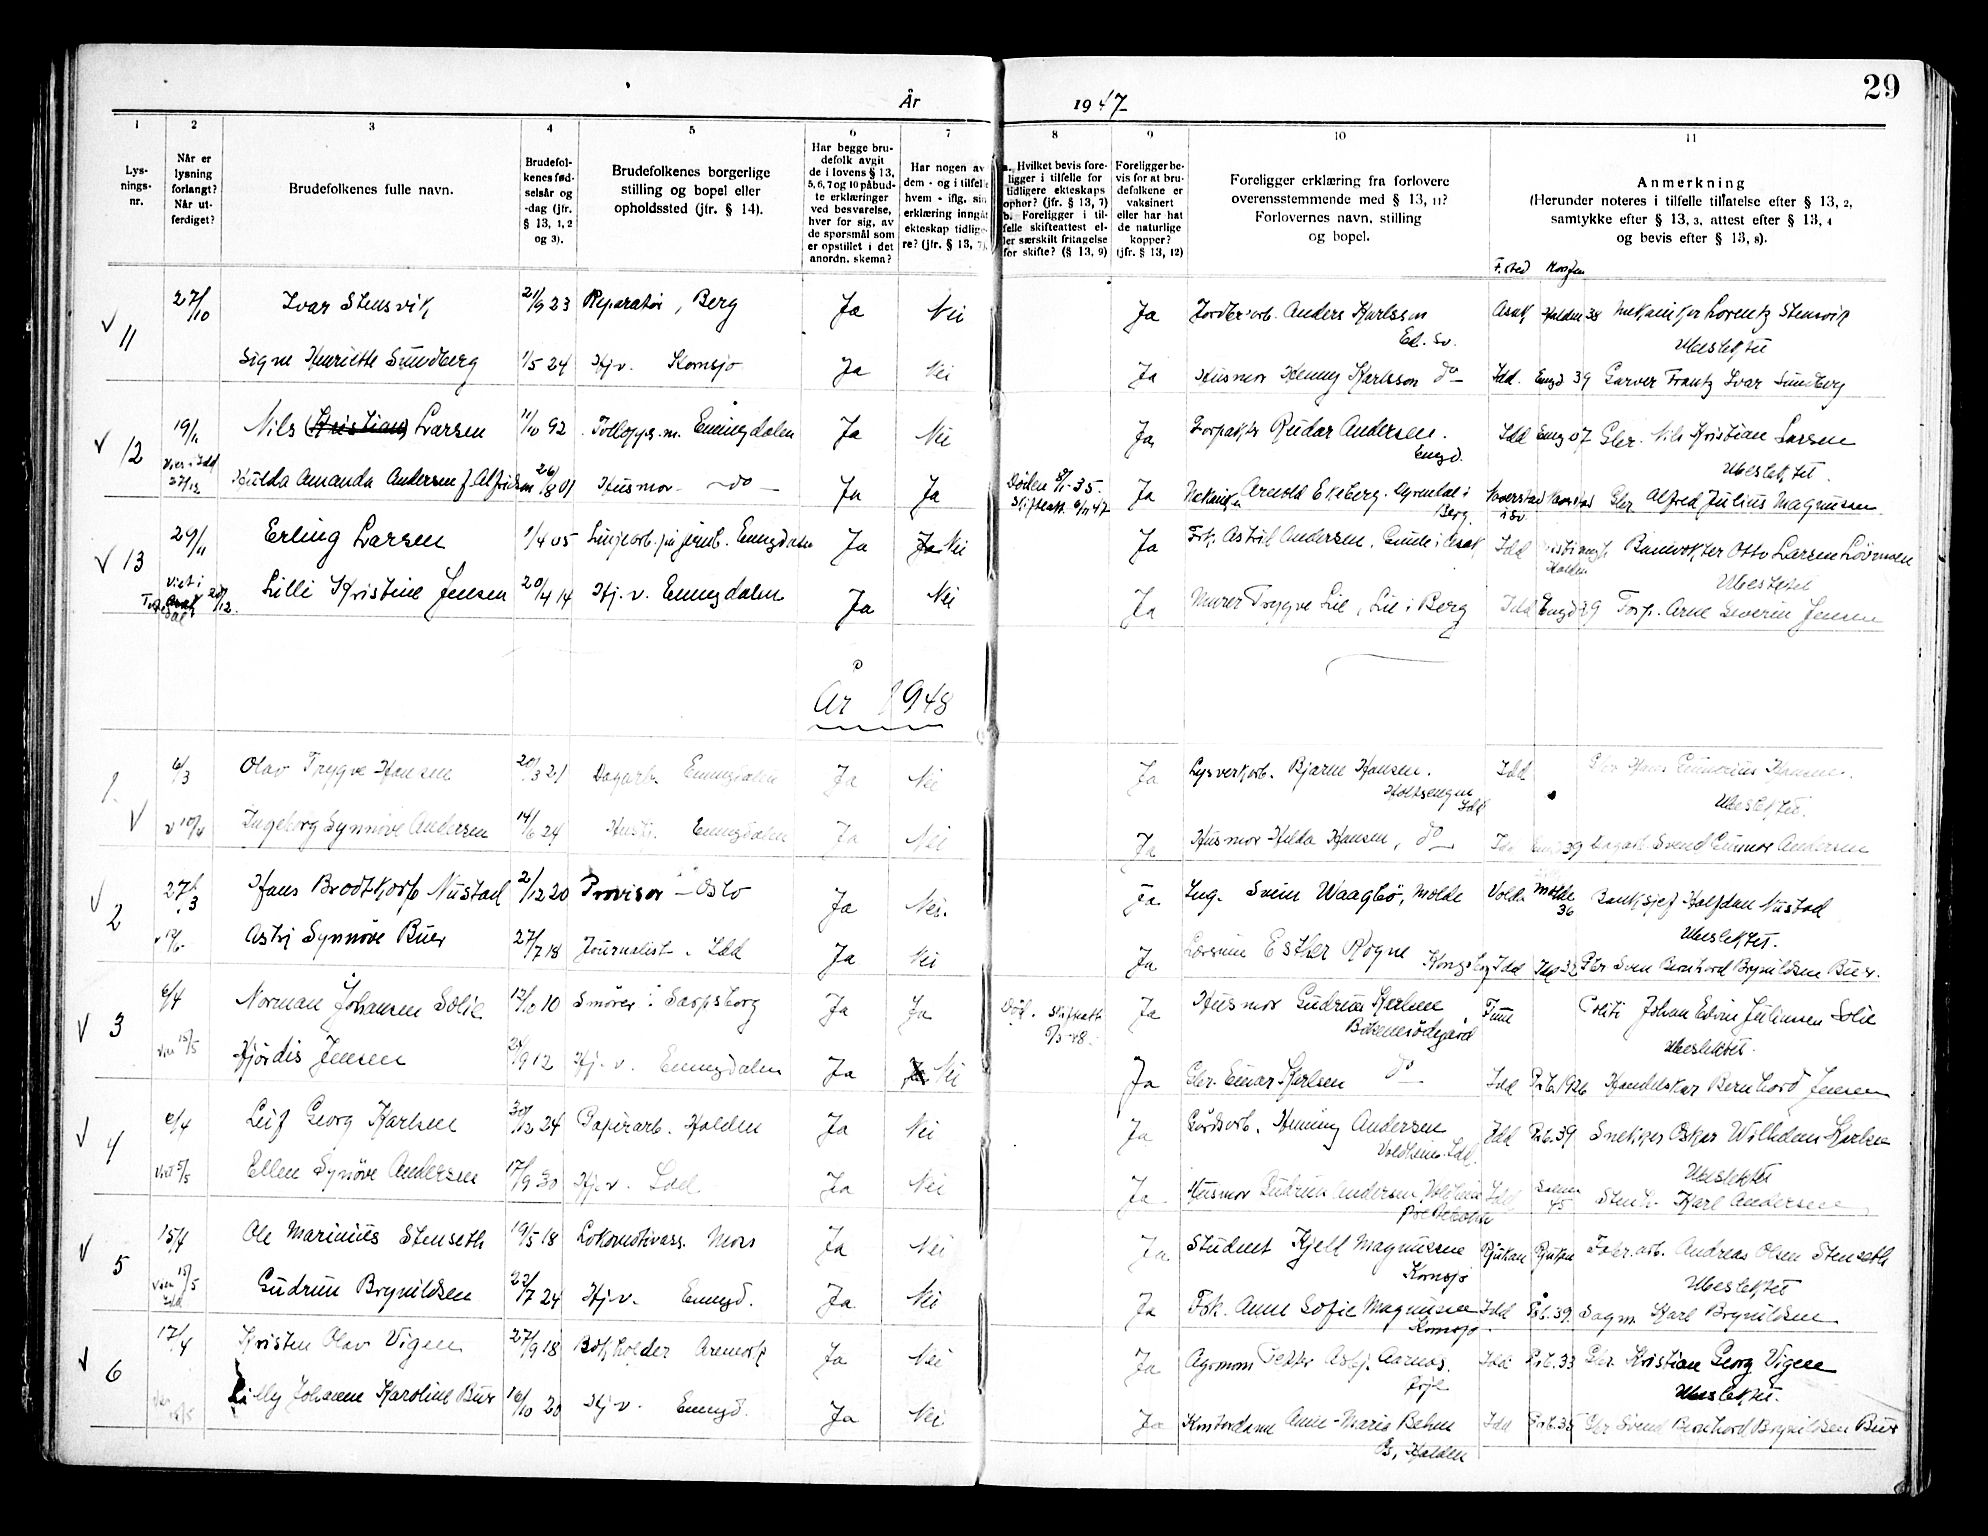 29
År 1947
1 2 3 4 5 6 7 8 9 10 11
Lysnings-nr.
Når er lysning forlangt? Når utferdiget?
Brudefolkenes fulle navn.
Brudefolkenes fødselsår og -dag (jfr. § 13, 1, 2 og 3).
Brudefolkenes borgerlige stilling og bopel eller opholdssted (jfr. § 14).
Har begge brudefolk avgitt de i lovens § 13, 5, 6, 7 og 10 påbudte erklæringer ved besvarelse, hver for sig, av de spørsmål som er opstillet i det anordn. skema?
Har nogen av dem - og i tilfelle hvem - iflg. sin erklæring inngått ekteskap tidligere? (jfr. § 13, 7).
a. Hvilket bevis foreligger i tilfelle for tidligere ekteskaps ophør? (jfr. § 13, 7) b. Foreligger i tilfelle skifteattest eller særskilt fritagelse for skifte? (§ 13, 9)
Foreligger bevis for at brudefolkene er vaksinert eller har hat de naturlige kopper? (jfr. § 13, 12)
Foreligger erklæring fra forlovere overensstemmende med § 13, 11? Forlovernes navn, stilling og bopel.
Anmerkning (Herunder noteres i tilfelle tillatelse efter § 13, 2, samtykke efter § 13, 3, attest efter § 13, 4 og bevis efter § 13, 8).
F. sted Konf
11 27/10 Ivar Stensvik 21/9 23 Reparatør, Berg Ja Nei Ja Jordbr.arb. Anders Karlsson Ed. Sv. Asak Halden 38 Mekaniker Lorentz Stensvik
Ubeslektet
Signe Henriette Sundberg 1/5 24 Hj.v. Kornsjø Ja Nei Ja Husmor Henny Karlsson do Idd. Engd 39 Garver Frantz Ivar Sundberg
12 19/11 Nils (Kristian) Larsen 11/10 92 Tollopps.m. Enningdalen Ja Nei Ja Forpakter Reidar Andersen. Engd. Idd Engd 07 Gbr. Nils Kristian Larsen
Ubeslektet.
Viet i Idd 27/12 Hulda Amanda Andersen f. Alfredsen 26/8 01 Husmor - do - Ja Ja Døden 35. Skifteatt. 47 Ja Mekaniker Arnold Ekeberg. Berg. Gbr Alfred Julius Magnusen.
13 29/11 Erling Larsen 1/4 05 Linjearb. på jernb. Enningdalen Ja Ja Nei Ja Frk. Astrid Andersen, Asak Idd Halden Banevokter Otto Larsen Løvmoen
Ubeslektet
Viet i 28/12 Lilli Kristine Jensen 20/4 14 Hj.v. Enningdalen Ja Nei Ja Murer Trygve Lie, Lie i Berg Idd Engd 29 Forp. Arne Severin Jensen
År 1948
1. 6/3 Olav Trygve Hansen 20/3 21 Dagarb. Enningdalen Ja Nei Ja Lysverkarb. Bjarne Hansen. Holtsengen Idd Idd Gbr Hans Gunerius Hansen.
Ubeslektet.
Ingeborg Synnøve Andersen 14/6 24 Husb. Enningdalen Ja Nei Ja Husmor Hilda Hansen, do Idd Engd 39 Dagarb. Svend Gunnar Andersen
2 27/3 Hans Brodtkorb Nustad 2/12 20 Provisor - Oslo Ja Nei. Ja Ing. Svein Waagbø, Molde Volda Molde 36 Banksjef Halfdan Nustad
Ubeslektet.
Astri Synnøve Buer 27/7 18 Journalist. Idd Ja Nei Ja Lærerinne Esther Rogne Kongsberg Idd Idd 32 Gbr Sven Bernhard Brynildsen Buer.
3 6/4 Norman Johansen Solie 12/10 10 Smører i Sarpsborg Ja Ja Død. Skifteatt 48 Ja Husmor Gudrun Karlsen Bokenesødegård Tune Politi Johan Edvin Juliussen Solie
Ubeslektet.
Viet 15/5 Hjørdis Jensen 24/9 12 Hj.v. Enningdalen Ja Ja Nei Ja Gbr. Einar Karlsen do Idd P.b. 1926 Handelskar Bernhard Jensen
4 6/4 Leif Georg Karlsen 30/12 24 Papirarb. Halden Ja Nei Ja Gårdsarb. Henning Andersen Voldheim. Idd. Idd P.b. 39. Snekker Oskar Wilhelm Karlsen
Ubeslektet
Viet 5/5 Ellen Synøve Andersen 17/9 30 Hj.v. Idd. Ja Nei Ja Husmor Gudrun Andersen, Voldheim Idd 45 Stenh. Karl Andersen
5 15/4 Ole Marinius Stenseth 19/5 18 Lokomotivass. Moss Ja Nei Ja Student Kjell Magnussen Kornsjø Rjukan Rjukan Fabr.arb. Andreas Olsen Stenseth
Ubeslektet
Viet 15/5 Idd Gudrun Brynildsen 22/7 24 Hj.v. Enningd. Ja Nei Ja Frk. Anne Sofie Magnussen Kornsjø Idd P.b. 39. Sagm. Karl Brynildsen
6 17/4 Kristen Olav Vigen 27/9 18 Bokholder Aremark Ja Nei Ja Agronom Petter Aarnes. Idd P.b. 33 Gbr. Kristian Georg Vigen
Ubeslektet.
Lilly Johanne Karoline Buer 16/10 20 Hj.v. Enningd. Ja Nei Ja Kontordame Anne-Marie Behm Os, Halden Idd P.b. 35 Gbr Svend Bernhard Brynildsen Buer